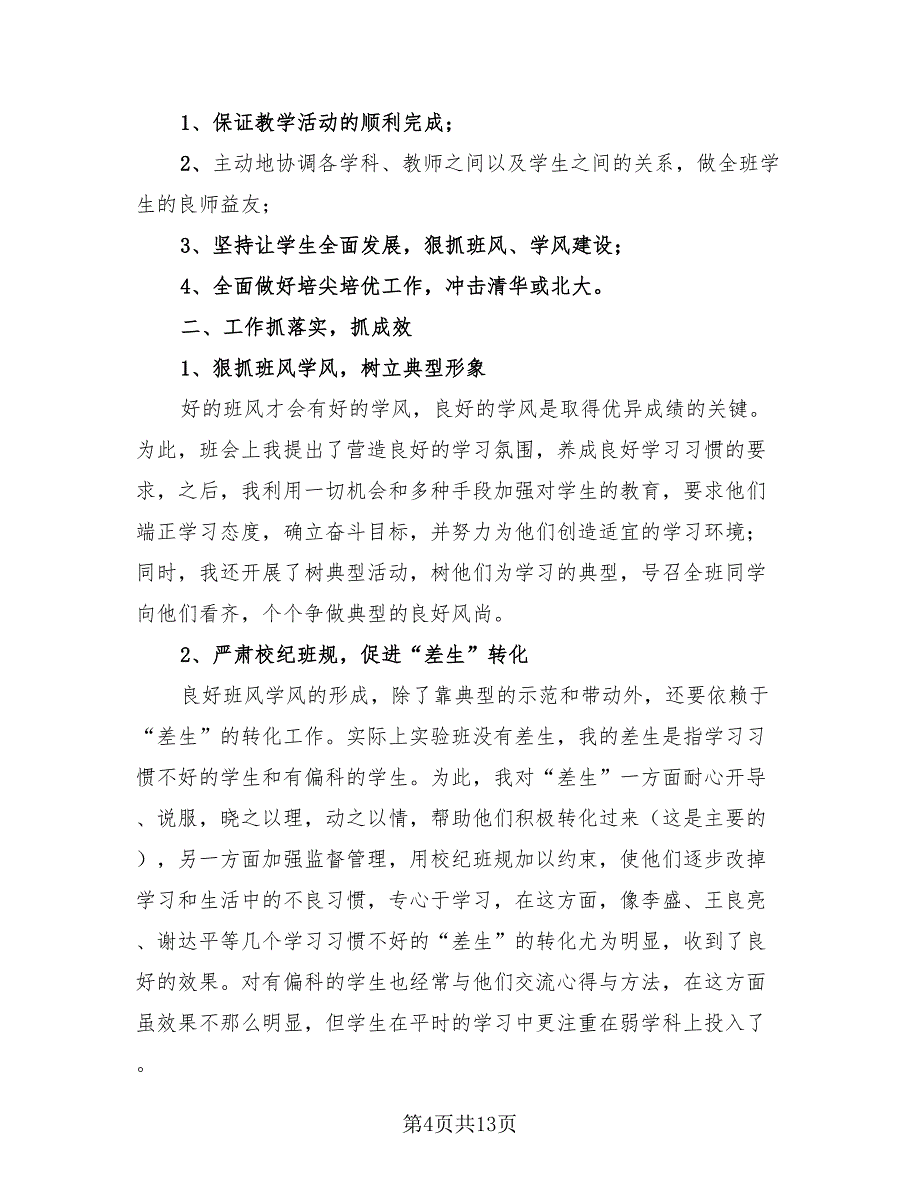 1、保证教学活动的顺利完成；
2、主动地协调各学科、教师之间以及学生之间的关系，做全班学
生的良师益友；
3、坚持让学生全面发展，狠抓班风、学风建设；
4、全面做好培尖培优工作，冲击清华或北大。
二、工作抓落实，抓成效
1、狠抓班风学风，树立典型形象
好的班风才会有好的学风，良好的学风是取得优异成绩的关键。
为此，班会上我提出了营造良好的学习氛围，养成良好学习习惯的要
求，之后，我利用一切机会和多种手段加强对学生的教育，要求他们
端正学习态度，确立奋斗目标，并努力为他们创造适宜的学习环境；
同时，我还开展了树典型活动，树他们为学习的典型，号召全班同学
向他们看齐，个个争做典型的良好风尚。
2、严肃校纪班规，促进“差生”转化
良好班风学风的形成，除了靠典型的示范和带动外，还要依赖于
“差生”的转化工作。实际上实验班没有差生，我的差生是指学习习
惯不好的学生和有偏科的学生。为此，我对“差生”一方面耐心开导
、说服，晓之以理，动之以情，帮助他们积极转化过来（这是主要的
），另一方面加强监督管理，用校纪班规加以约束，使他们逐步改掉
学习和生活中的不良习惯，专心于学习，在这方面，像李盛、王良亮
、谢达平等几个学习习惯不好的“差生”的转化尤为明显，收到了良
好的效果。对有偏科的学生也经常与他们交流心得与方法，在这方面
虽效果不那么明显，但学生在平时的学习中更注重在弱学科上投入了
。
第4页共13页